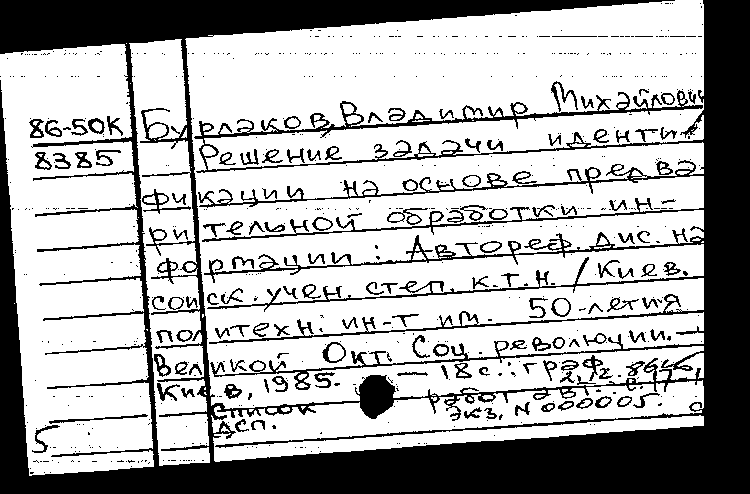 86-50К
8385
Бурлаков, Владимир Михайлович
Решение задачи иденти-
фикации на основе предва-
рительной обработки ин-
формации : Автореф. дис. на
соиск. учен. степ. к.т.н. / Киев.
политехн. ин-т им. 50-летия
Великой Окт. Соц. революции. —
Киев, 1985. — 18 с. : граф.
Список работ авт.: с. 17-
ДСП. Экз. N 000005.
5